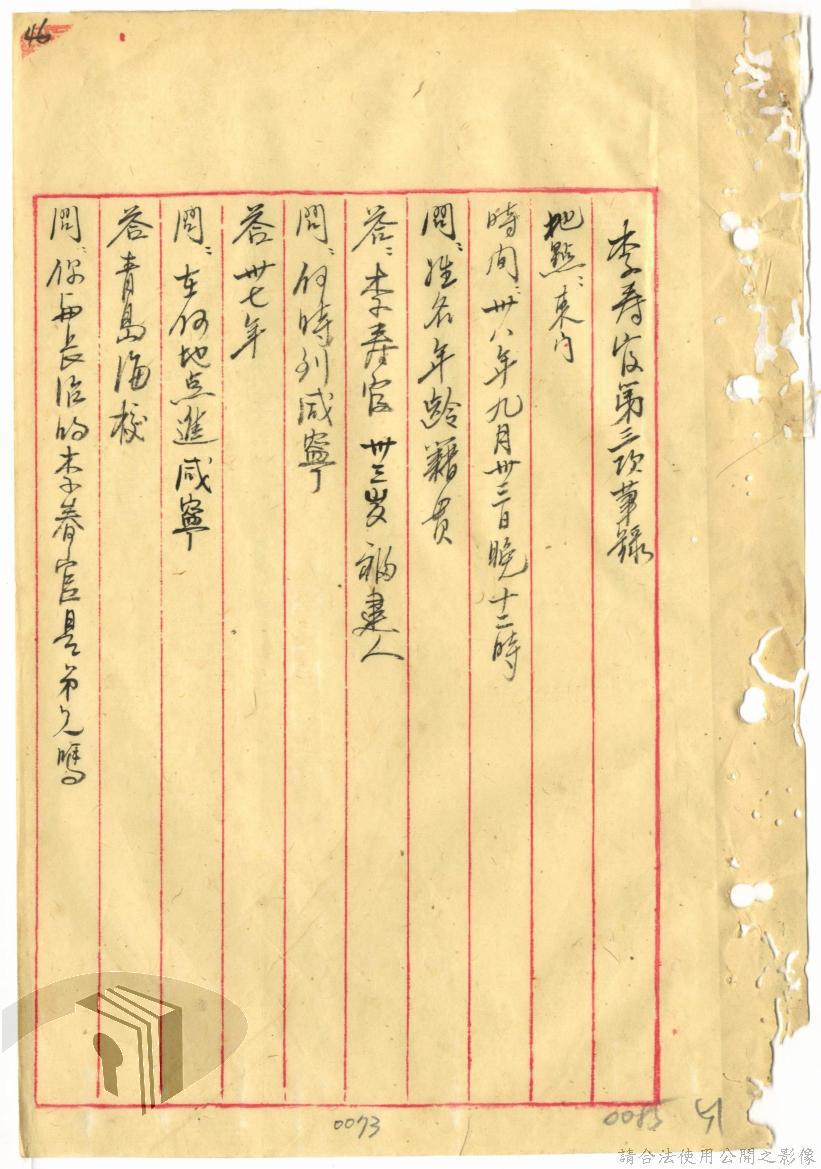 46
李壽官第三次筆錄
地點:東內
時間:卅八年九月廿三日晚十二時
問:姓名年齡籍貫
答:李壽官 卅三岁 福建人
問:何時到咸寧
答 卅七年
問:在何地点進咸寧
答 青島海校
問:你與長治的李春官是弟兄嗎
0073
0085
請合法使用公開之影像